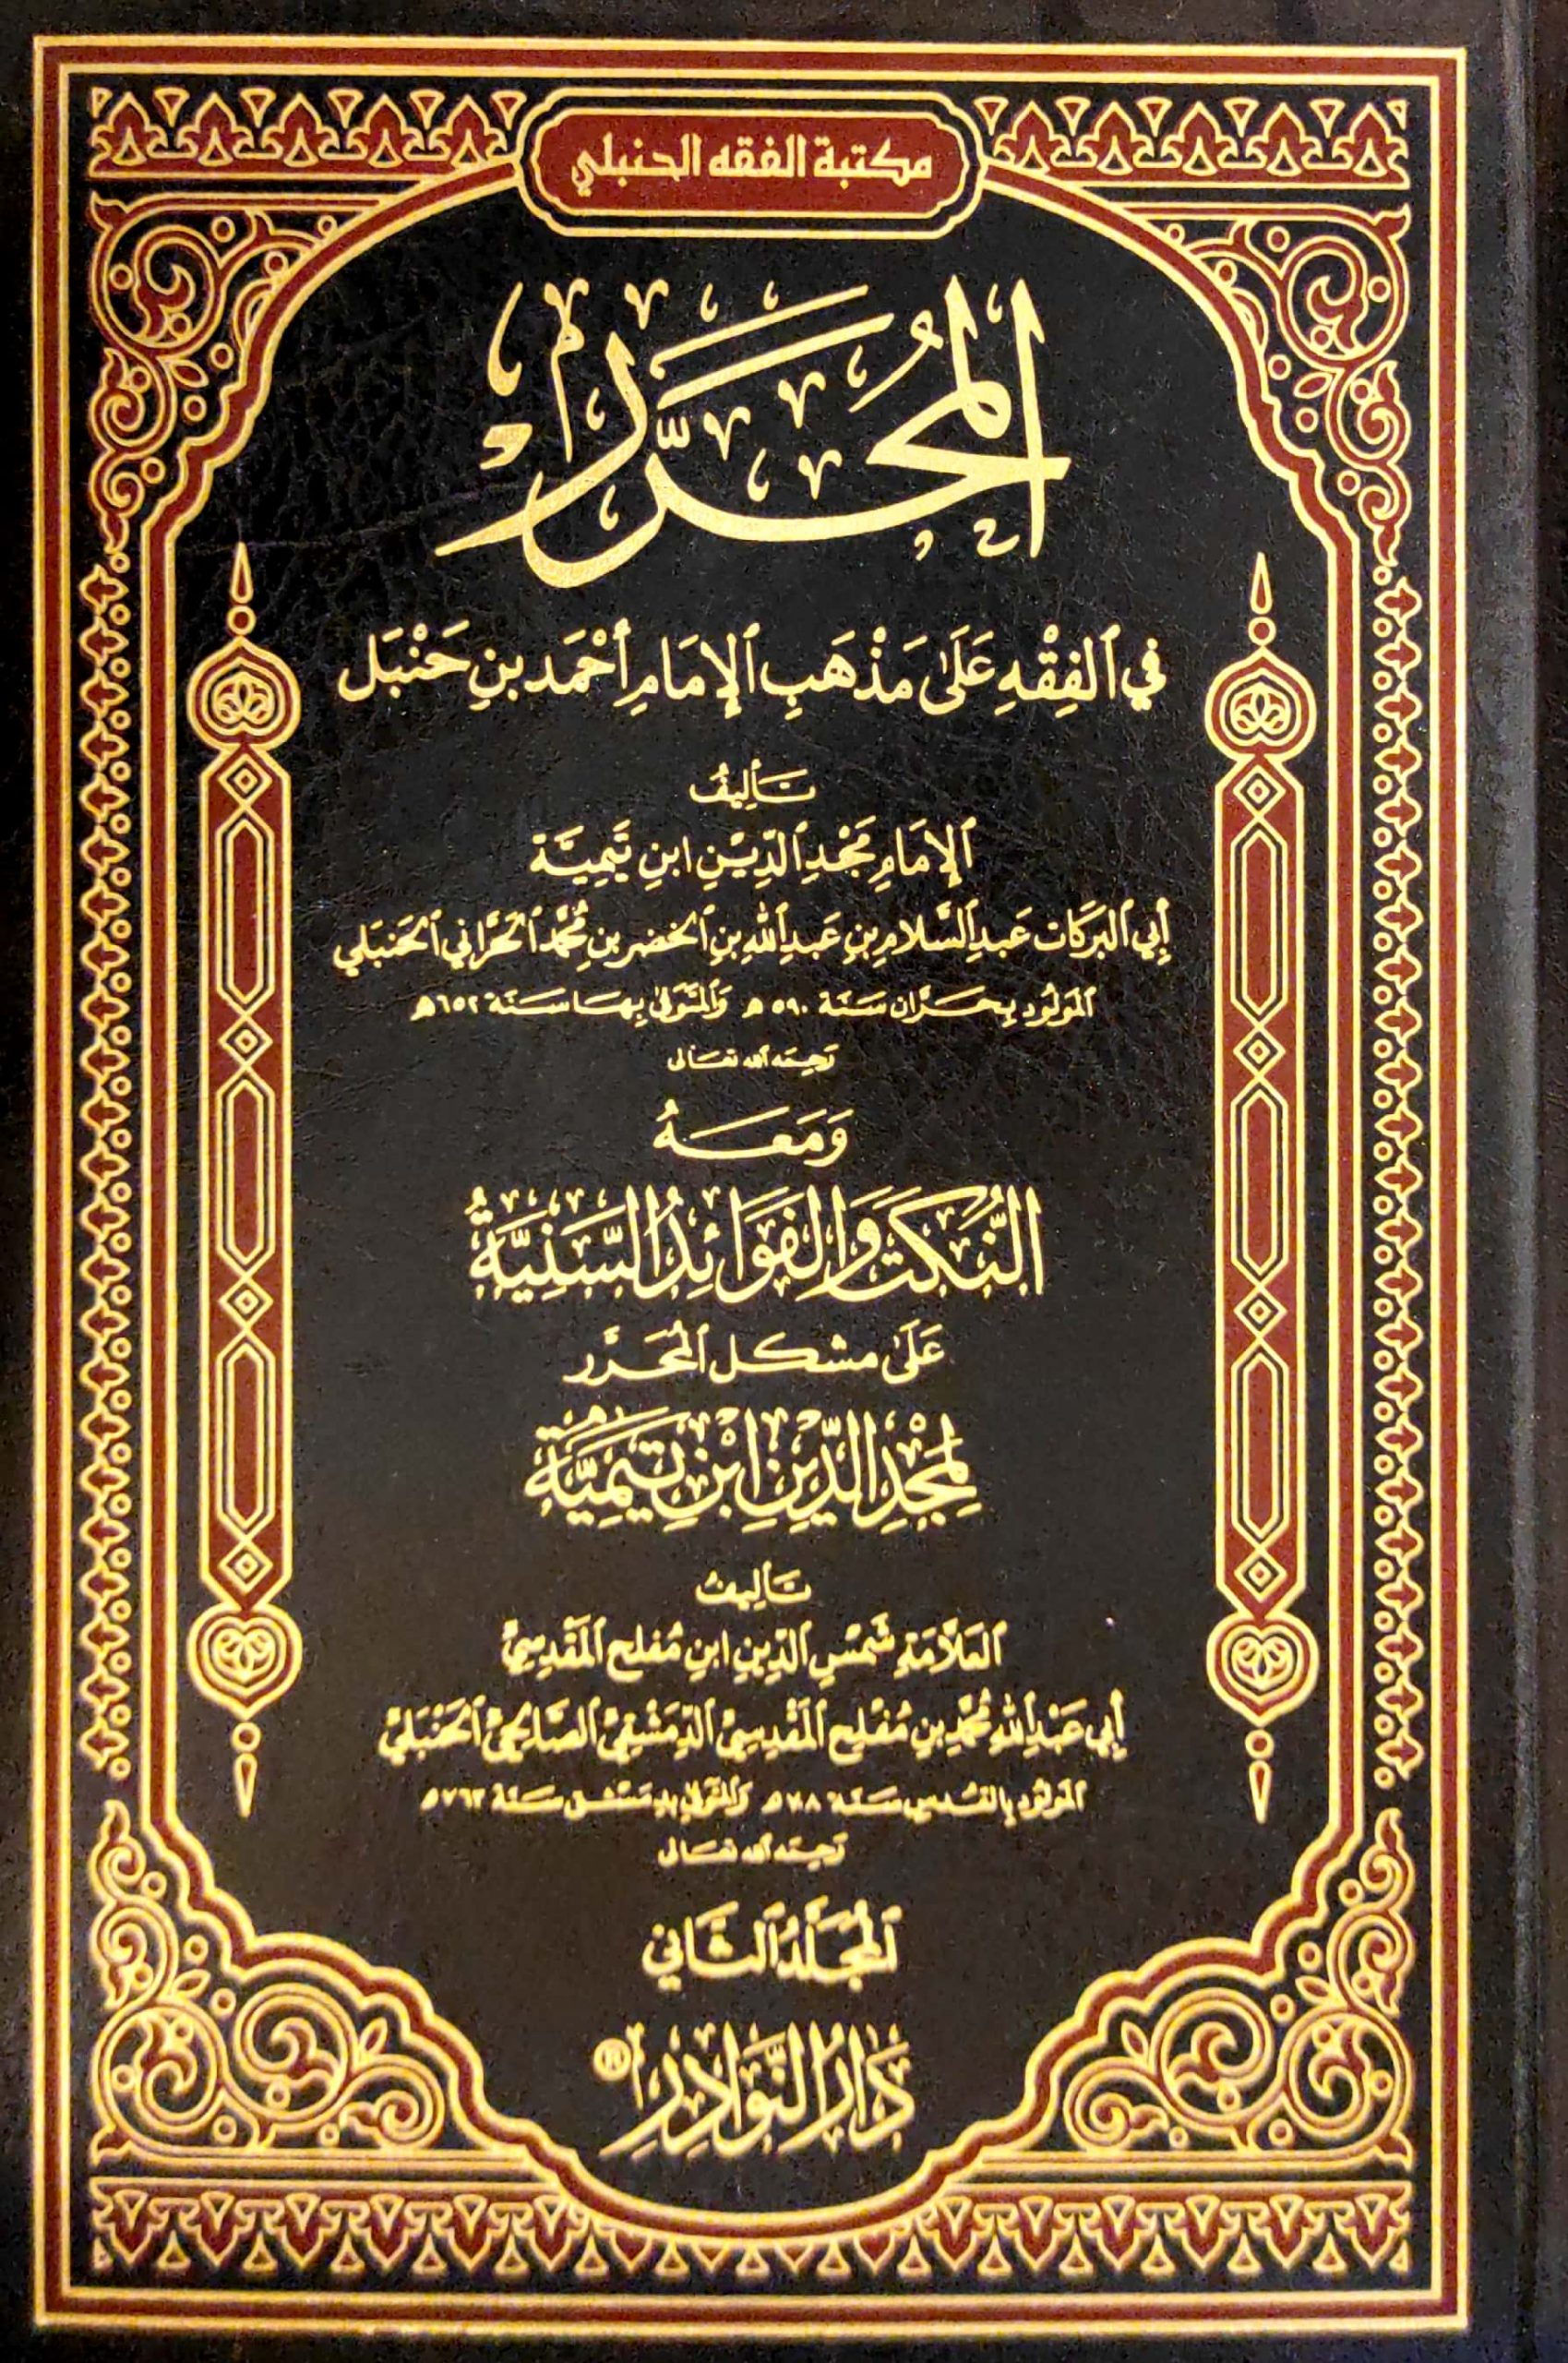 مكتبة الفقه الحنبلي
المُحَرَّر
في الفِقْهِ عَلَى مَذْهَبِ الإِمَامِ أَحْمَد بنِ حَنْبَل
تَأليفُ
الإِمَامِ مَجْدِ الدِّيْنِ ابنِ تَيْمِيَّة
أبي البَركَات عَبدِ السَّلامِ بنِ عَبدِ اللهِ بنِ الخضر بنِ مُحَمَّد الحَرَّاني الحَنبَلي
المَولُود بِحَرَّان سَنَة ٥٩٠ هـ وَالمتَوفى بِها سَنَة ٦٥٢ هـ
رَحِمَه الله تعَالى
وَمَعَهُ
النُّكَتُ وَالفَوَائِدُ السَّنِيَّةُ
عَلَى مشكل المُحَرَّر
لِمَجْدِ الدِّيْنِ ابْنِ تَيْمِيَّة
تَأليفُ
العَلَّامَةِ شَمْسِ الدِّينِ ابنِ مُفلح المَقْدِسِيّ
أبي عَبْدِ اللهِ مُحَمَّدِ بنِ مُفْلِح المَقْدِسِيّ الدِّمَشْقِيّ الصَّالِحِيّ الحَنْبَلِيّ
المَولُود بِالقُدس سَنَة ٧٠٨ هـ وَالمتَوفى بِدِمَشْق سَنَة ٧٦٣ هـ
رَحِمَه الله تعَالى
المُجَلَّدُ الثَّاني
دَارُ النَّوَادِرِ ®